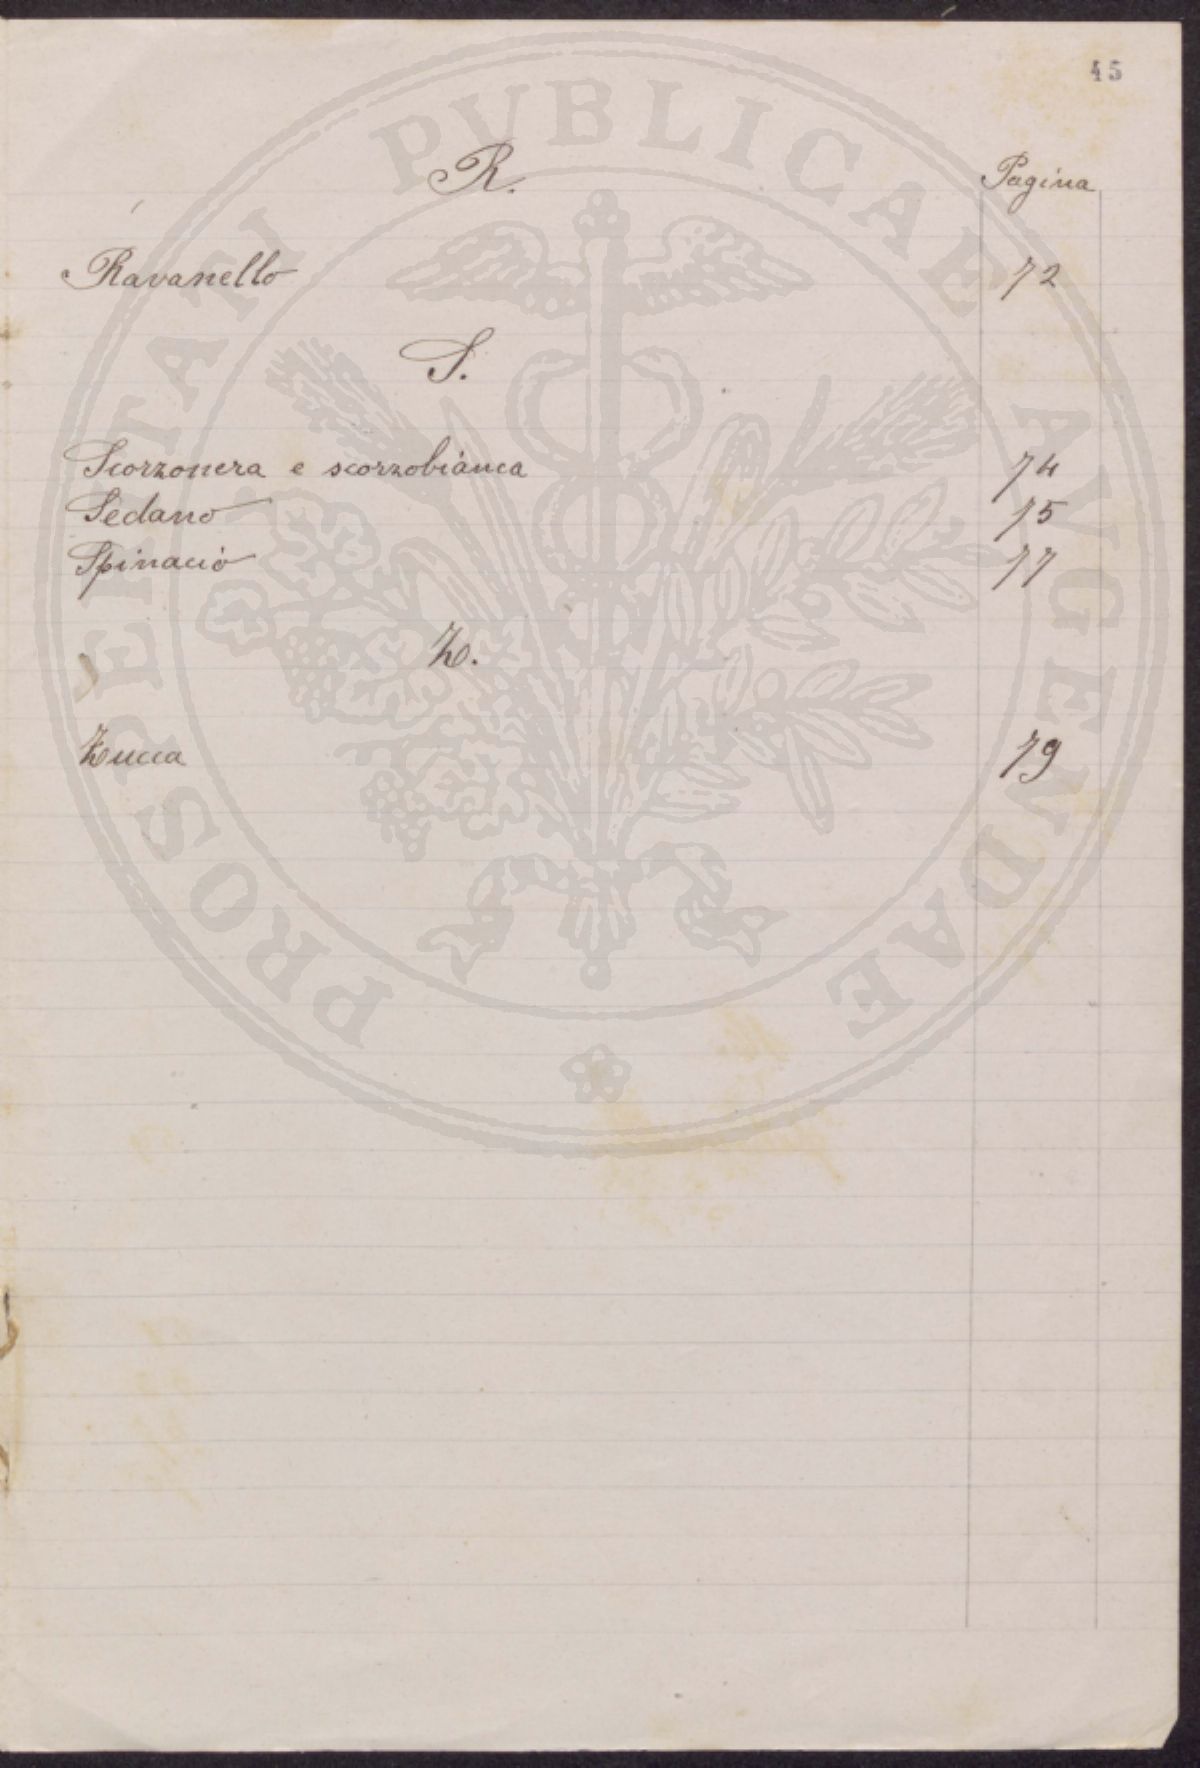 45
R.
Pagina
Ravanello 72
S.
Scorzonera e scorzobianca 74
Sedano 75
Spinacio 77
Z.
Zucca 79
PROSPERITATI PVBLICAE AVGENDAE